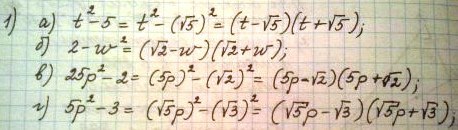 1) а) t² - 5 = t² - (√5)² = (t - √5)(t + √5);
б) 2 - w² = (√2 - w)(√2 + w);
в) 25p² - 2 = (5p)² - (√2)² = (5p - √2)(5p + √2);
г) 5p² - 3 = (√5p)² - (√3)² = (√5p - √3)(√5p + √3);